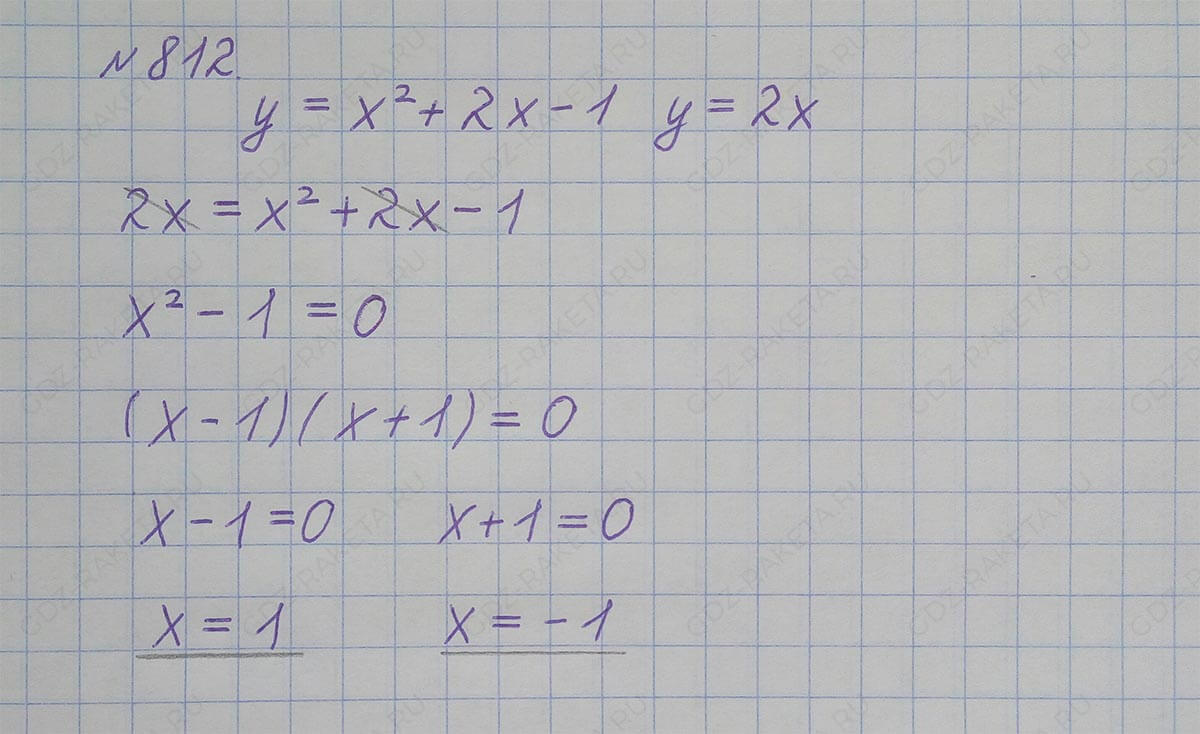 N 812.
y = x² + 2x - 1 y = 2x
2x = x² + 2x - 1
x² - 1 = 0
(x - 1)(x + 1) = 0
x - 1 = 0 x + 1 = 0
x = 1 x = -1
GDZ-RAKETA.RU